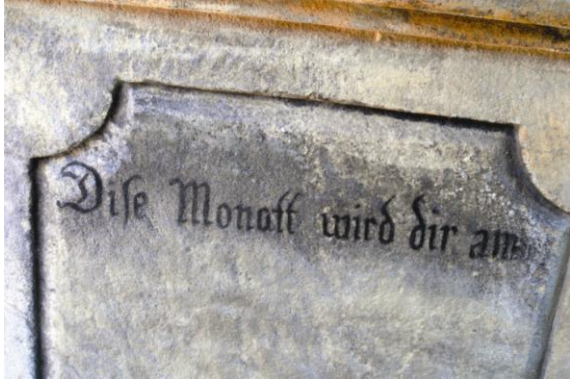 Dise Monatt wird dir am